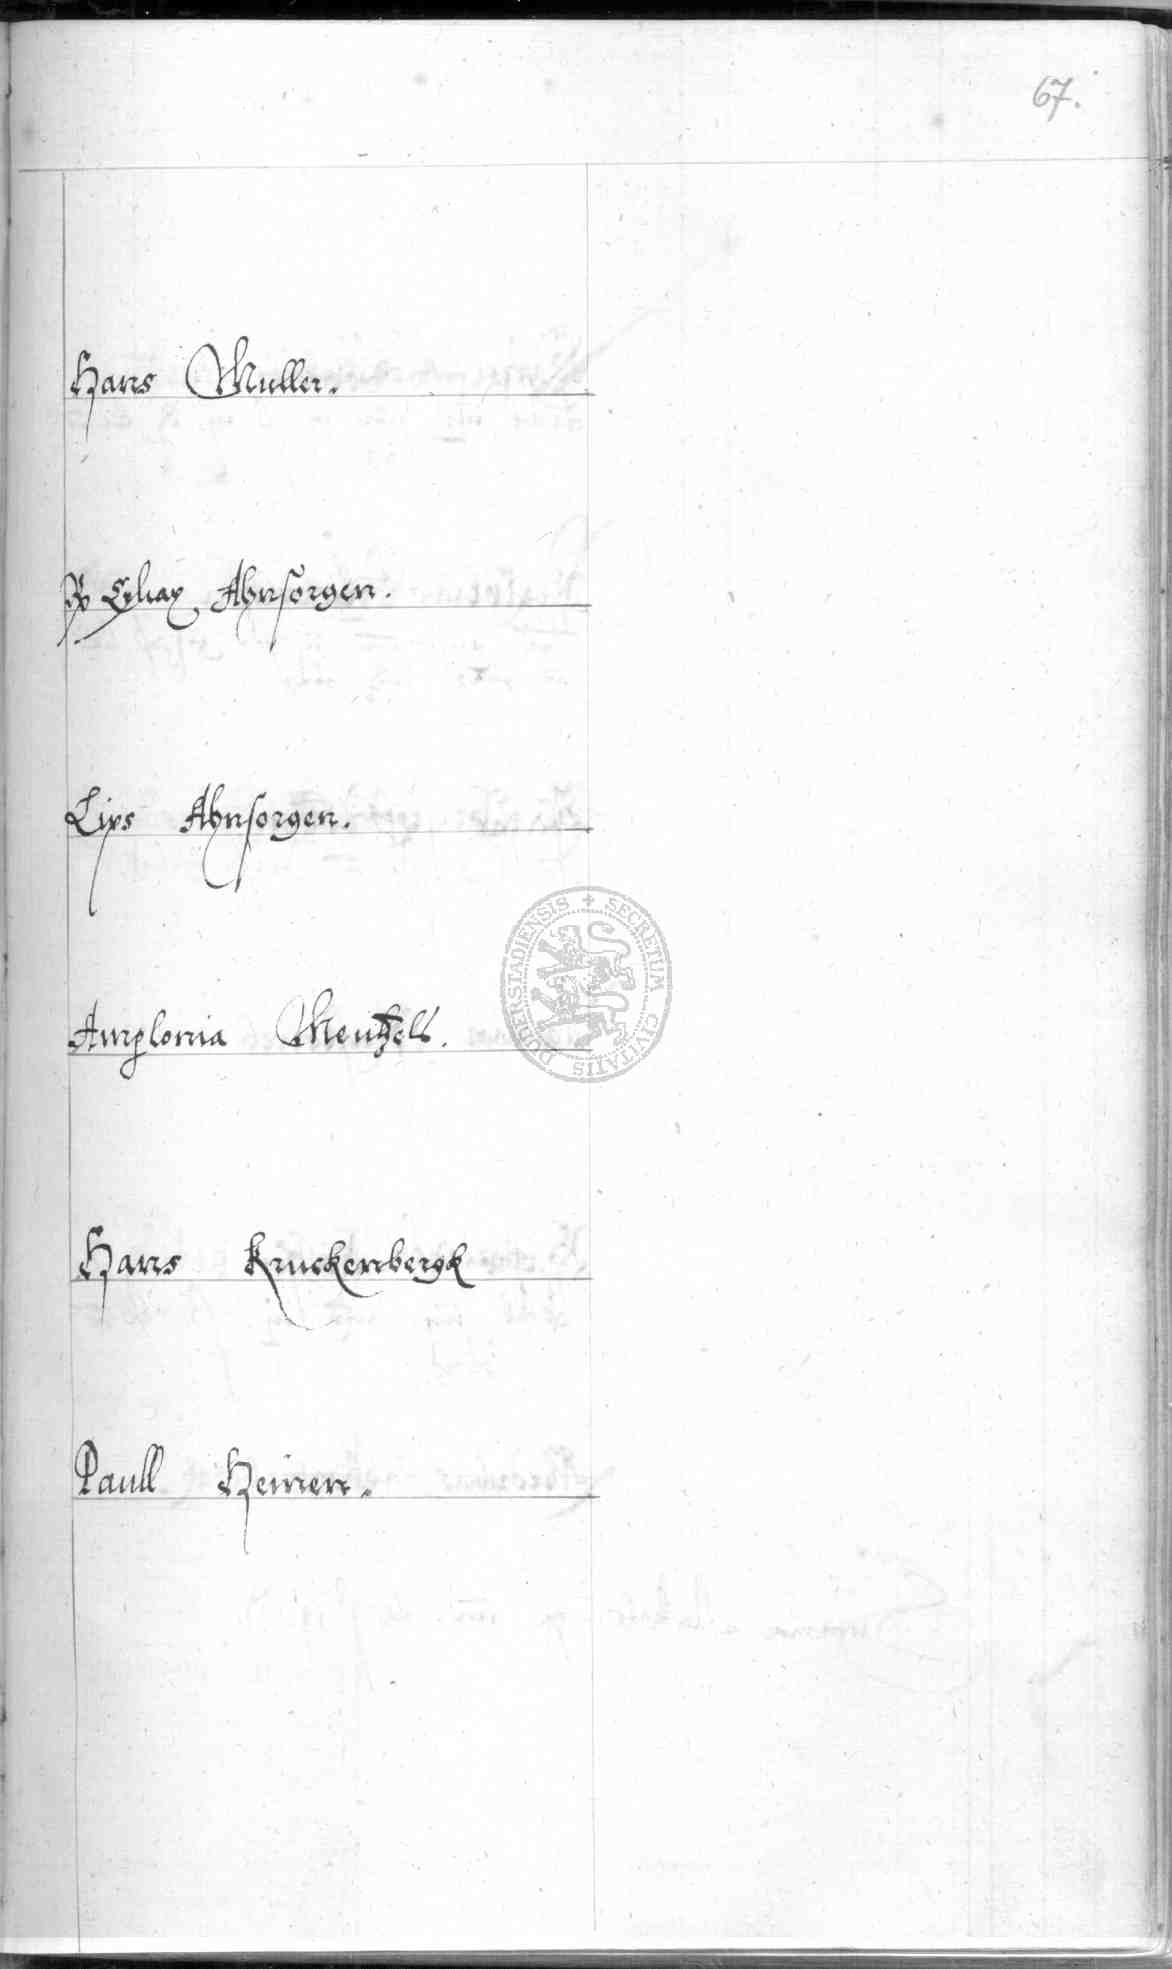 67.
Hans Muller.
Ahnsorgen.
Lips Ahnsorgen.
Amplonia Mentzels.
Hans Kruckenbergk
Paull Heinen.
SECRETUM CIVITATIS DUDERSTADIENSIS